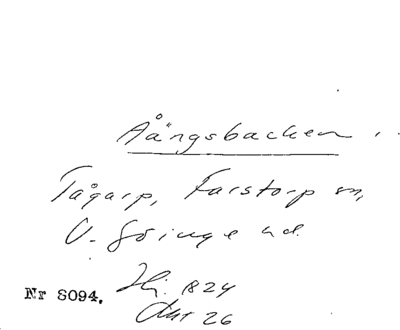 Åängsbacken
Tågarp, Farstorp sn,
V. Göinge hd.
Nr 8094. Hj. 1824
Akt 26